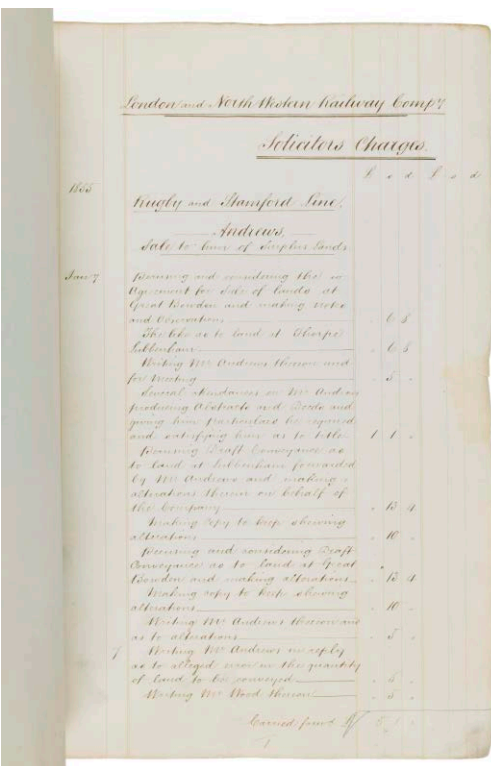 London and North Western Railway Compy
Solicitors Charges.
£ s d £ s d
1855
Rugby and Stamford Line,
Andrews,
Sale to him of Surplus Lands
Jany 7 Perusing and considering the
Agreement for Sale of lands at
Great Bowden and making notes
and Observations . 6 8
The like as to land at Thorpe
Lubbenham . 6 8
Writing Mr Andrews thereon and
for Meeting . 5 .
Several attendances on Mr Andrews
producing Abstracts and Deeds and
giving him particulars he required
and satisfying him as to title 1 1 .
Perusing Draft Conveyance as
to land at Lubbenham forwarded
by Mr Andrews and making
alterations therein on behalf of
the Company . 13 4
Making copy to keep shewing
alterations . 10 .
Perusing and considering Draft
Conveyance as to land at Great
Bowden and making alterations . 13 4
Making copy to keep shewing
alterations . 10 .
Writing Mr Andrews thereon and
as to alterations . 5 .
Writing Mr Andrews in reply
as to alleged error in the quantity
of land to be conveyed . 5 .
Writing Mr Wood thereon . 5 .
Carried forwd £ 5 1 .
1